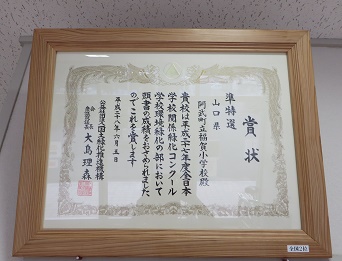 賞状
準特選
山口県
阿武町立福賀小学校殿
貴校は平成二十七年度全日本
学校関係緑化コンクール
学校環境緑化の部において
頭書の成績をおさめられました
のでこれを賞します
平成二十八年六月五日
公益社団法人国土緑化推進機構
会長
大島理森
全国2位